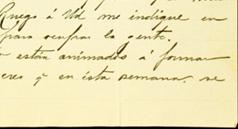 Ruego á Ud me indique en
para ocupar la gente.
están animados á formar
eres q en ésta semana, se